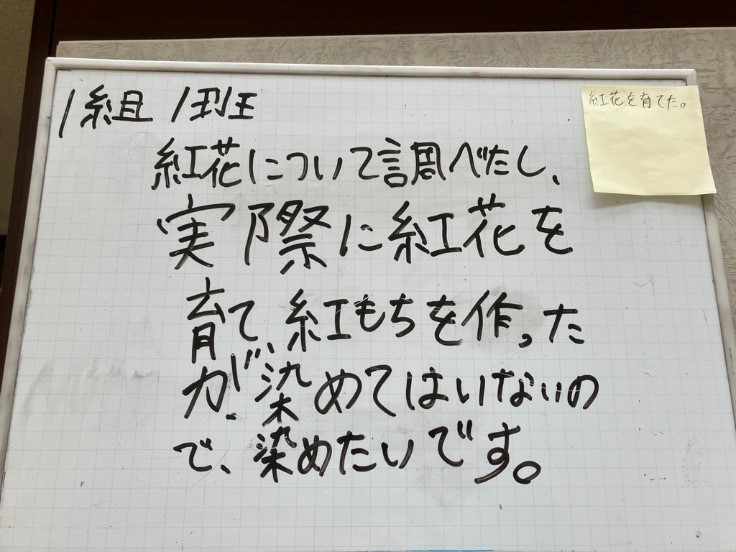 1組 1班
紅花を育てた。
紅花について調べたし、
実際に紅花を
育て、紅もちを作った
が、染めてはいないの
で、染めたいです。